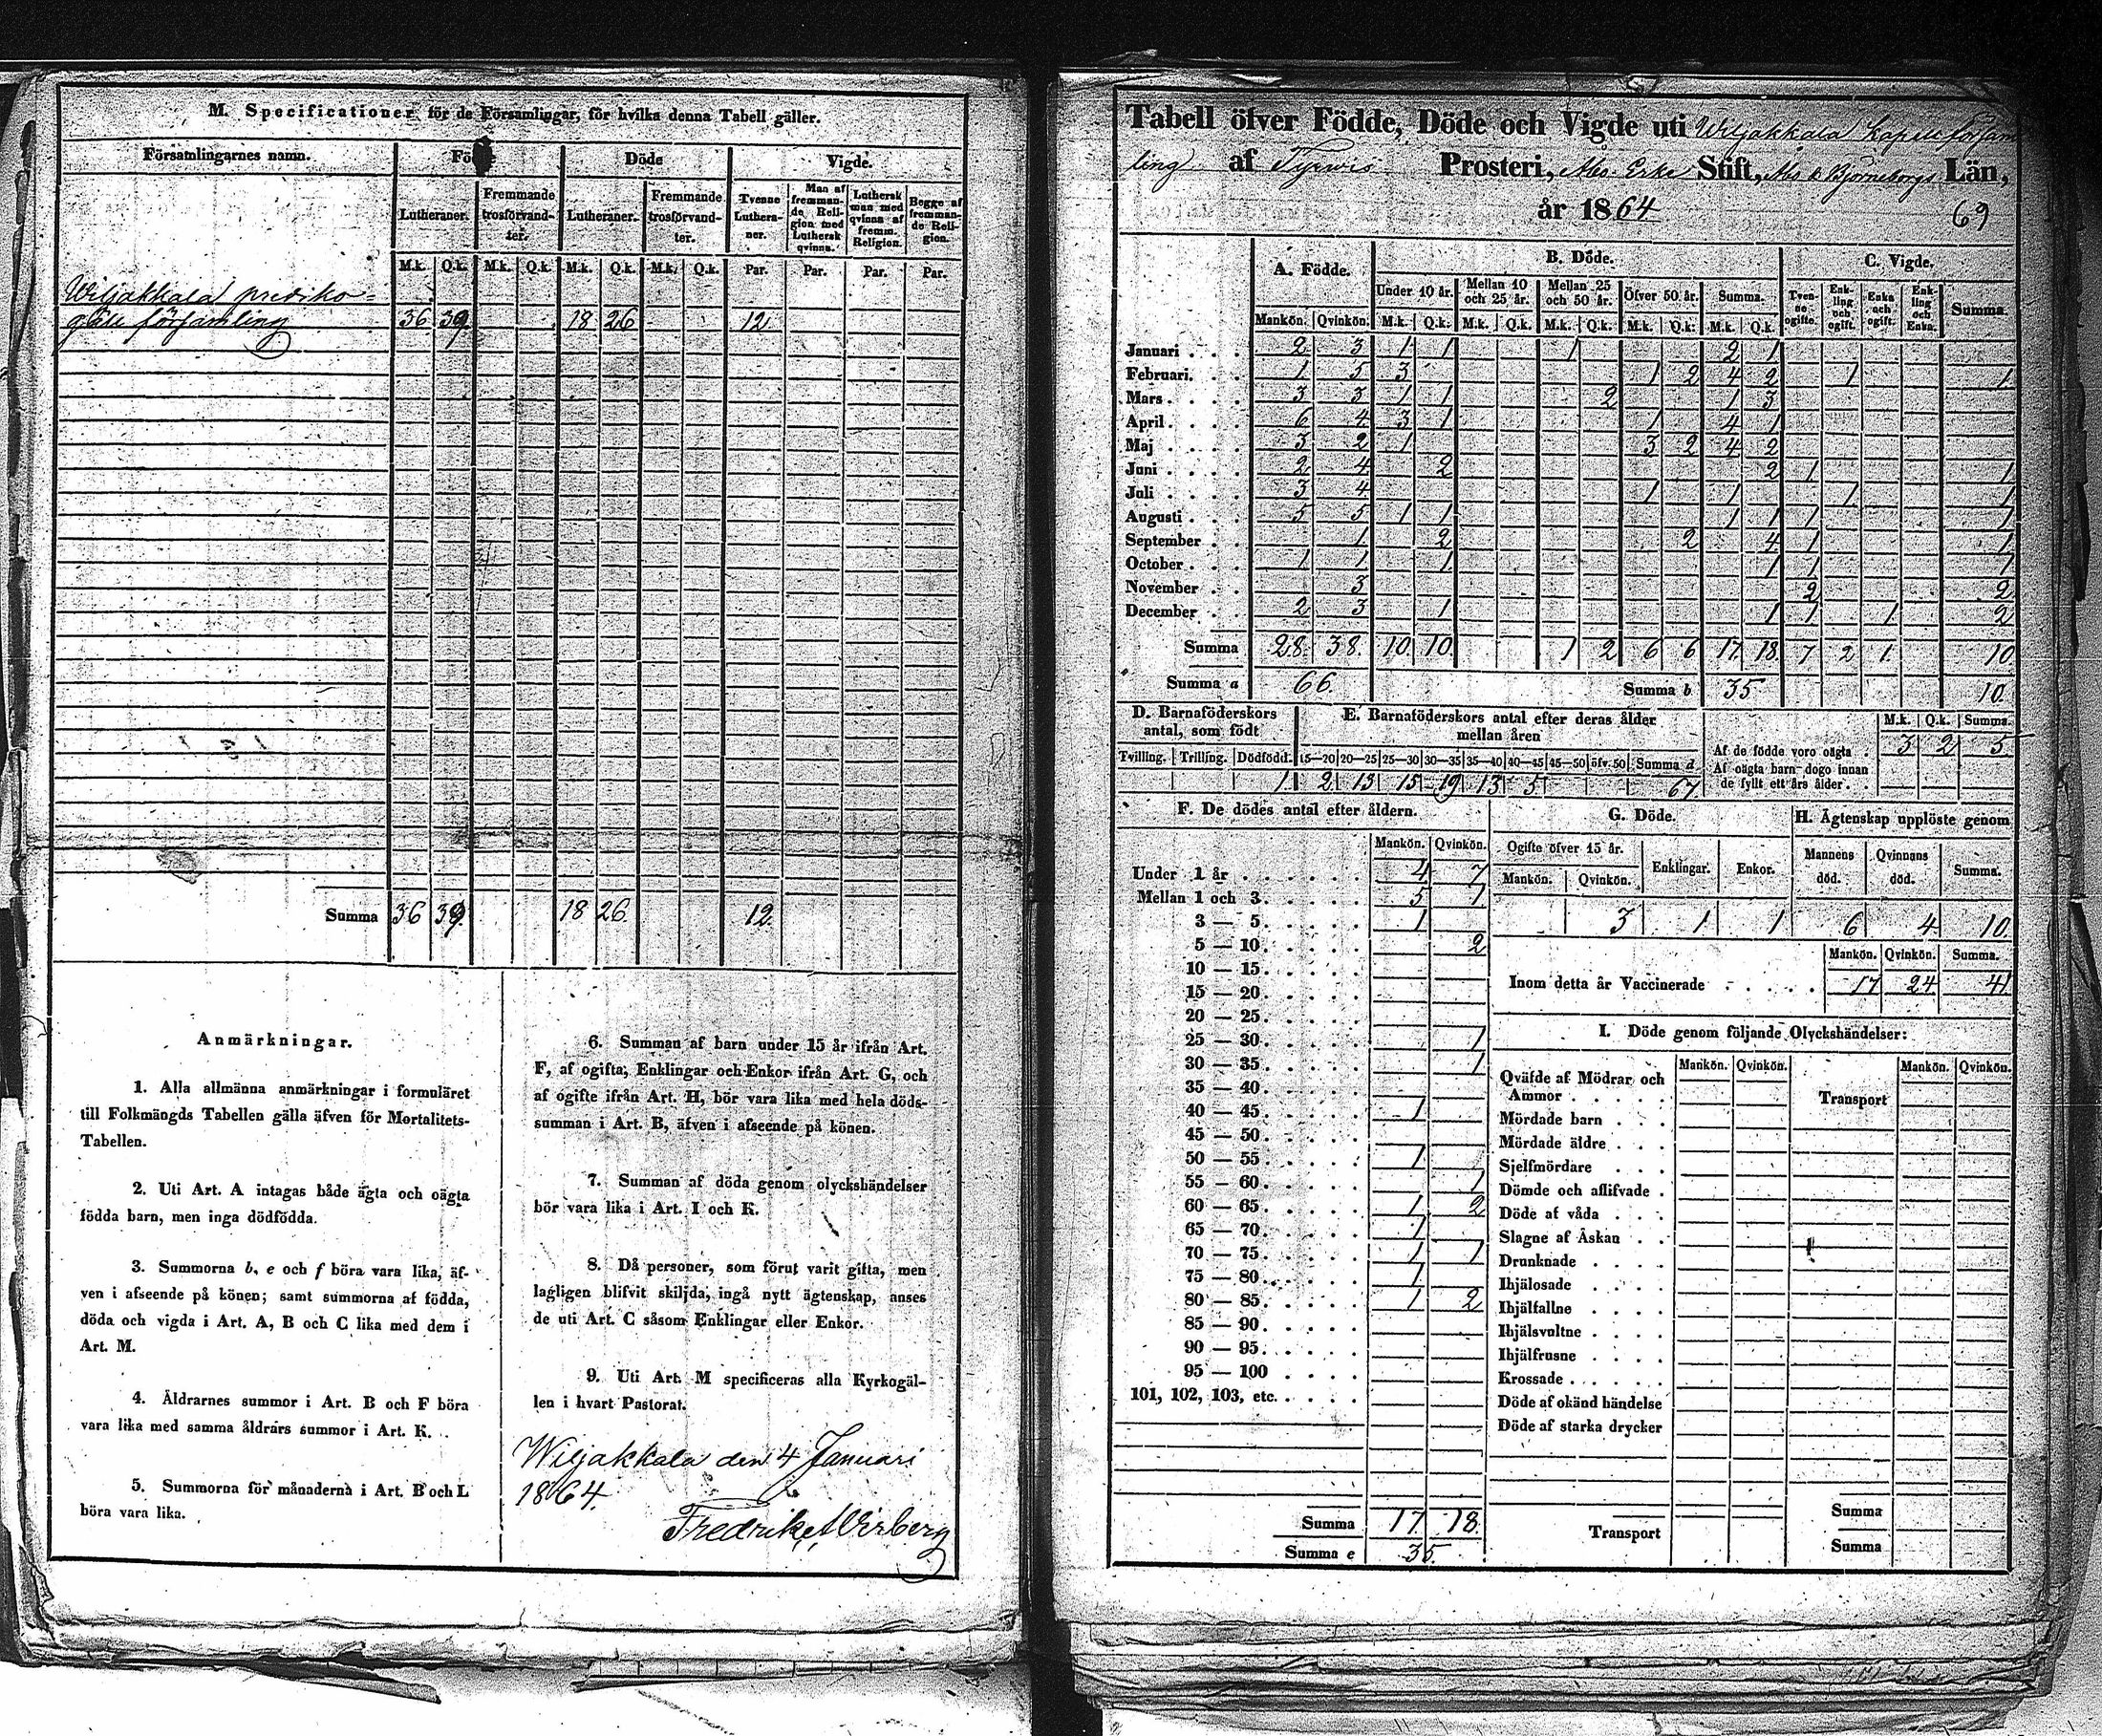 M. Specificationer för de Församlingar, för hvilka denna Tabell gäller.
Församlingarnes namn. Döde Vigde.
Lutheraner. Fremmande trosförvandter. Lutheraner. Fremmande trosförvandter. Tvenne Lutheraner. Man af fremmande Religion med Luthersk qvinna. Luthersk man med qvinna af fremm. Religion. Begge af fremmande Religion.
M.k. Q.k. M.k. Q.k. M.k. Q.k. M.k. Q.k. Par. Par. Par. Par.
Wiljakkala prediko=
gälls församling 36 39 18 26 12
Summa 36 39 18 26 12
Anmärkningar.
1. Alla allmänna anmärkningar i formuläret
till Folkmängds Tabellen gälla äfven för Mortalitets-
Tabellen.
2. Uti Art. A intagas både ägta och oägta
födda barn, men inga dödfödda.
3. Summorna b, e och f böra vara lika, äf-
ven i afseende på könen; samt summorna af födda,
döda och vigda i Art. A, B och C lika med dem i
Art. M.
4. Åldrarnes summor i Art. B och F böra
vara lika med samma åldrars summor i Art. K.
5. Summorna för månaderna i Art. B och L
böra vara lika.
6. Summan af barn under 15 år ifrån Art.
F, af ogifta, Enklingar och Enkor ifrån Art. G, och
af ogifte ifrån Art. H, bör vara lika med hela döds-
summan i Art. B, äfven i afseende på könen.
7. Summan af döda genom olyckshändelser
bör vara lika i Art. I och K.
8. Då personer, som förut varit gifta, men
lagligen blifvit skiljda, ingå nytt ägtenskap, anses
de uti Art. C såsom Enklingar eller Enkor.
9. Uti Art. M specificeras alla Kyrkogäl-
len i hvart Pastorat.
Wiljakkala den 4 Januari
1864.
Fredrik Wirberg
Tabell öfver Födde, Döde och Vigde uti Wiljakkala Kapellförsam
ling af Tyrwis Prosteri, Åbo Erke Stift, Åbo & Björneborgs Län,
år 1864 69
A. Födde. B. Döde. C. Vigde.
Under 10 år. Mellan 10 och 25 år. Mellan 25 och 50 år. Öfver 50 år. Summa. Tvenne ogifte. Enkling och ogift. Enka och ogift. Enkling och Enka. Summa.
Mankön. Qvinkön. M.k. Q.k. M.k. Q.k. M.k. Q.k. M.k. Q.k. M.k. Q.k.
Januari 2 3 1 1 1 2 1
Februari. 1 5 3 1 2 4 2 1 1
Mars 3 3 1 1 2 1 3
April 6 4 3 1 1 4 1
Maj 3 2 1 3 2 4 2
Juni 2 4 2 2 1 1
Juli 3 4 1 1 1 1
Augusti 5 5 1 1 1 1 1 1
September 1 2 2 4 1 1
October 1 1 1 1 1 1
November 3 2 2
December 2 3 1 1 1 1 2
Summa 28. 38. 10 10 1 2 6 6 17 18 7 2 1. 10
Summa a 66. Summa b 35 10.
D. Barnaföderskors antal, som födt
Tvilling. Trilling. Dödfödd.
1
E. Barnaföderskors antal efter deras ålder mellan åren
15—20 20—25 25—30 30—35 35—40 40—45 45—50 öfv. 50 Summa d
2 13 15 19 13 5 67
M.k. Q.k. Summa.
Af de födde voro oägta 3 2 5
Af oägta barn dogo innan
de fyllt ett års ålder
F. De dödes antal efter åldern.
Mankön. Qvinkön.
Under 1 år 4 7
Mellan 1 och 3 5 1
3 — 5 1
5 — 10 2
10 — 15
15 — 20
20 — 25
25 — 30 1
30 — 35 1
35 — 40
40 — 45 1
45 — 50
50 — 55 1
55 — 60 1
60 — 65 1 2
65 — 70 1
70 — 75 1 1
75 — 80 1
80 — 85 1 2
85 — 90
90 — 95
95 — 100
101, 102, 103, etc.
Summa 17 18.
Summa e 35.
G. Döde.
Ogifte öfver 15 år. Enklingar. Enkor.
Mankön. Qvinkön.
3 1 1
H. Ägtenskap upplöste genom
Mannens död. Qvinnans död. Summa.
6 4 10
Mankön. Qvinkön. Summa.
Inom detta år Vaccinerade 17 24 41
I. Döde genom följande Olyckshändelser:
Mankön. Qvinkön. Mankön. Qvinkön.
Qväfde af Mödrar och
Ammor Transport
Mördade barn
Mördade äldre
Sjelfmördare
Dömde och aflifvade
Döde af våda
Slagne af Åskan
Drunknade
Ihjälosade
Ihjälfallne
Ihjälsvultne
Ihjälfrusne
Krossade
Döde af okänd händelse
Döde af starka drycker
Summa
Transport Summa